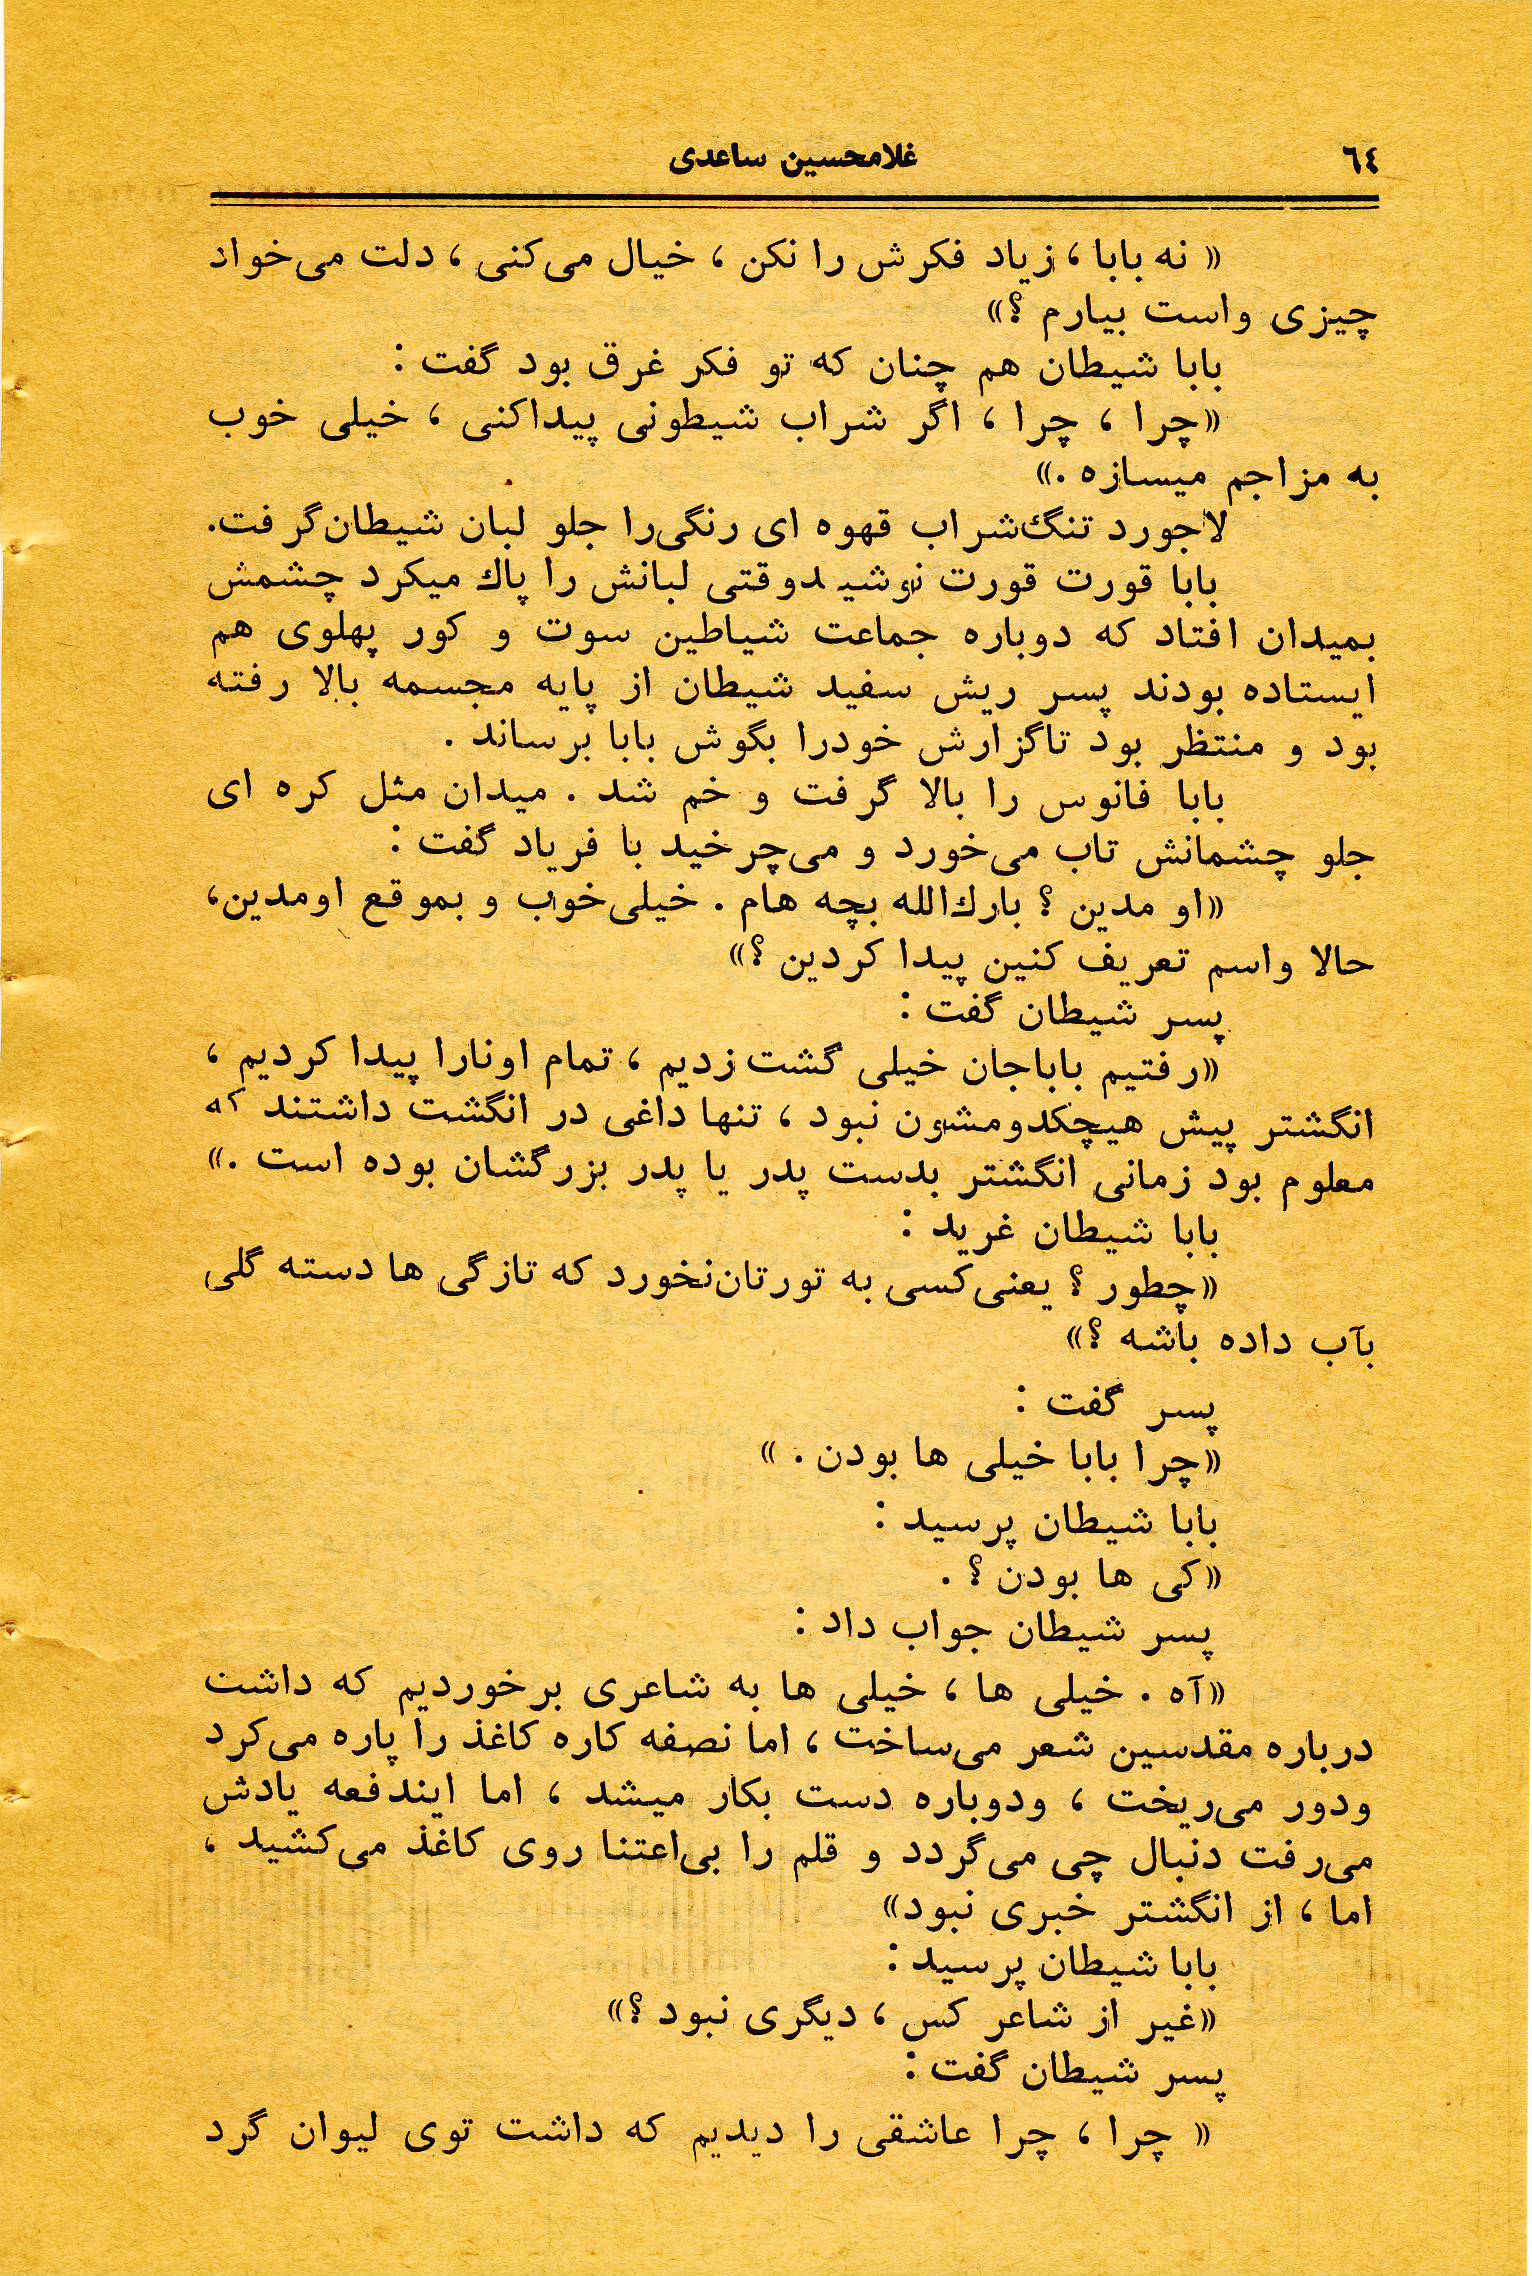 ٦٤ غلامحسین ساعدی
« نه بابا ، زیاد فکرش را نکن ، خیال می‌کنی ، دلت می‌خواد
چیزی واست بیارم ؟»
بابا شیطان هم چنان که تو فکر غرق بود گفت :
«چرا ، چرا ، اگر شراب شیطونی پیداکنی ، خیلی خوب
به مزاجم میسازه .»
لاجورد تنگ‌شراب قهوه ای رنگی‌را جلو لبان شیطان‌گرفت.
بابا قورت قورت نوشید‌وقتی لبانش را پاك میکرد چشمش
بمیدان افتاد که دوباره جماعت شیاطین سوت و کور پهلوی هم
ایستاده بودند پسر ریش سفید شیطان از پایه مجسمه بالا رفته
بود و منتظر بود تاگزارش خودرا بگوش بابا برساند .
بابا فانوس را بالا گرفت و خم شد . میدان مثل کره ای
جلو چشمانش تاب می‌خورد و می‌چرخید با فریاد گفت :
«او مدین ؟ بارك‌الله بچه هام . خیلی‌خوب و بموقع اومدین،
حالا واسم تعریف کنین پیدا کردین ؟»
پسر شیطان گفت :
«رفتیم باباجان خیلی گشت زدیم ، تمام اونارا پیدا کردیم ،
انگشتر پیش هیچکدومشون نبود ، تنها داغی در انگشت داشتند که
معلوم بود زمانی انگشتر بدست پدر یا پدر بزرگشان بوده است .»
بابا شیطان غرید :
«چطور ؟ یعنی‌کسی به تورتان‌نخورد که تازگی ها دسته گلی
بآب داده باشه ؟»
پسر گفت :
«چرا بابا خیلی ها بودن . »
بابا شیطان پرسید :
«کی ها بودن ؟ .
پسر شیطان جواب داد :
«آه . خیلی ها ، خیلی ها به شاعری برخوردیم که داشت
درباره مقدسین شعر می‌ساخت ، اما نصفه کاره کاغذ را پاره می‌کرد
ودور می‌ریخت ، ودوباره دست بکار میشد ، اما ایندفعه یادش
می‌رفت دنبال چی می‌گردد و قلم را بی‌اعتنا روی کاغذ می‌کشید ،
اما ، از انگشتر خبری نبود»
بابا شیطان پرسید :
«غیر از شاعر کس ، دیگری نبود ؟»
پسر شیطان گفت :
« چرا ، چرا عاشقی را دیدیم که داشت توی لیوان گرد